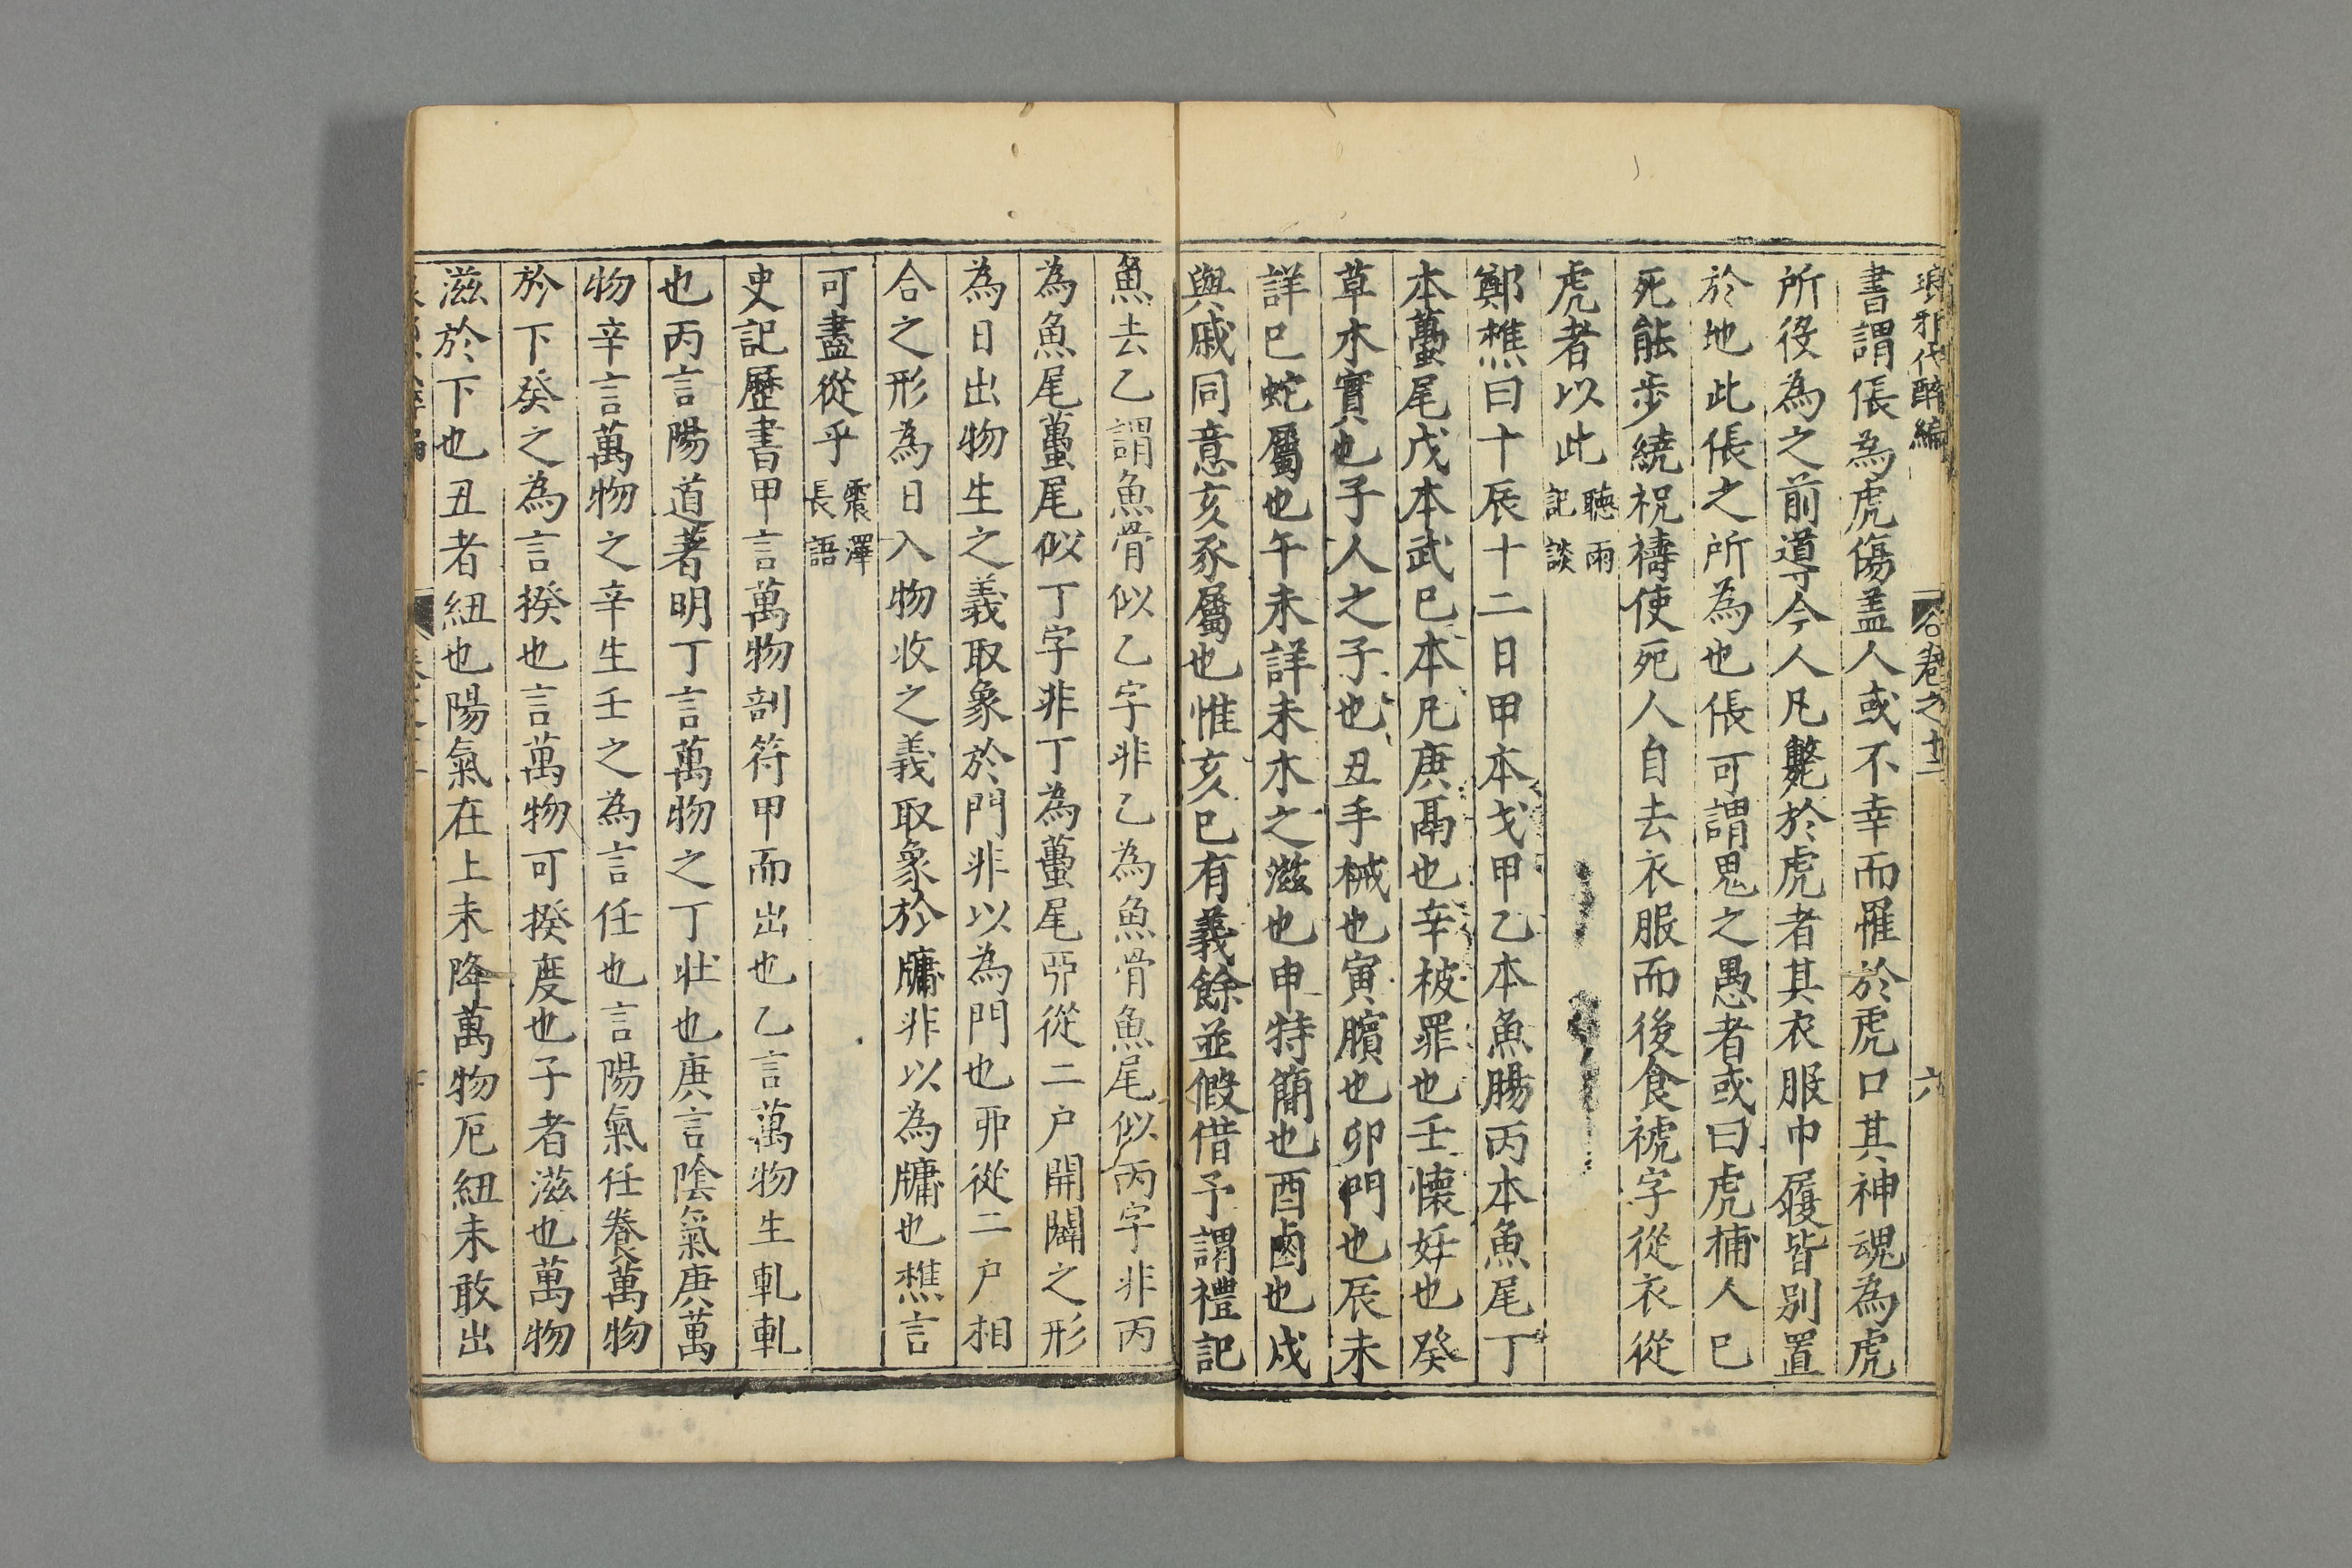 琅邪代醉編 卷之十二 六
書謂倀為虎傷盖人或不幸而罹於虎口其神魂為虎
所役為之前導今人凡斃於虎者其衣服巾履皆别置
於地此倀之所為也倀可謂鬼之愚者或曰虎捕人巳
死能步繞祝禱使死人自去衣服而後食褫字從衣從
虎者以此聽雨
記談
鄭樵曰十辰十二日甲本戈甲乙本魚腸丙本魚尾丁
本蠆尾戊本武巳本几庚鬲也辛被罪也壬懐妊也癸
草木實也子人之子也丑手械也寅臏也卯門也辰未
詳巳蛇屬也午未詳未木之滋也申特簡也酉鹵也戌
與戚同意亥豕屬也惟亥巳有義餘並假借予謂禮記
魚去乙謂魚骨似乙字非乙為魚骨魚尾似丙字非丙
為魚尾蠆尾似丁字非丁為蠆尾丣從二户開闢之形
為日出物生之義取象於門非以為門也丣從二户相
合之形為日入物收之義取象於牗非以為牗也樵言
可盡從乎震澤
長語
史記歷書甲言萬物剖符甲而出也乙言萬物生軋軋
也丙言陽道著明丁言萬物之丁壯也庚言陰氣庚萬
物辛言萬物之辛生壬之為言任也言陽氣任養萬物
於下癸之為言揆也言萬物可揆度也子者滋也萬物
滋於下也丑者紐也陽氣在上未降萬物厄紐未敢出